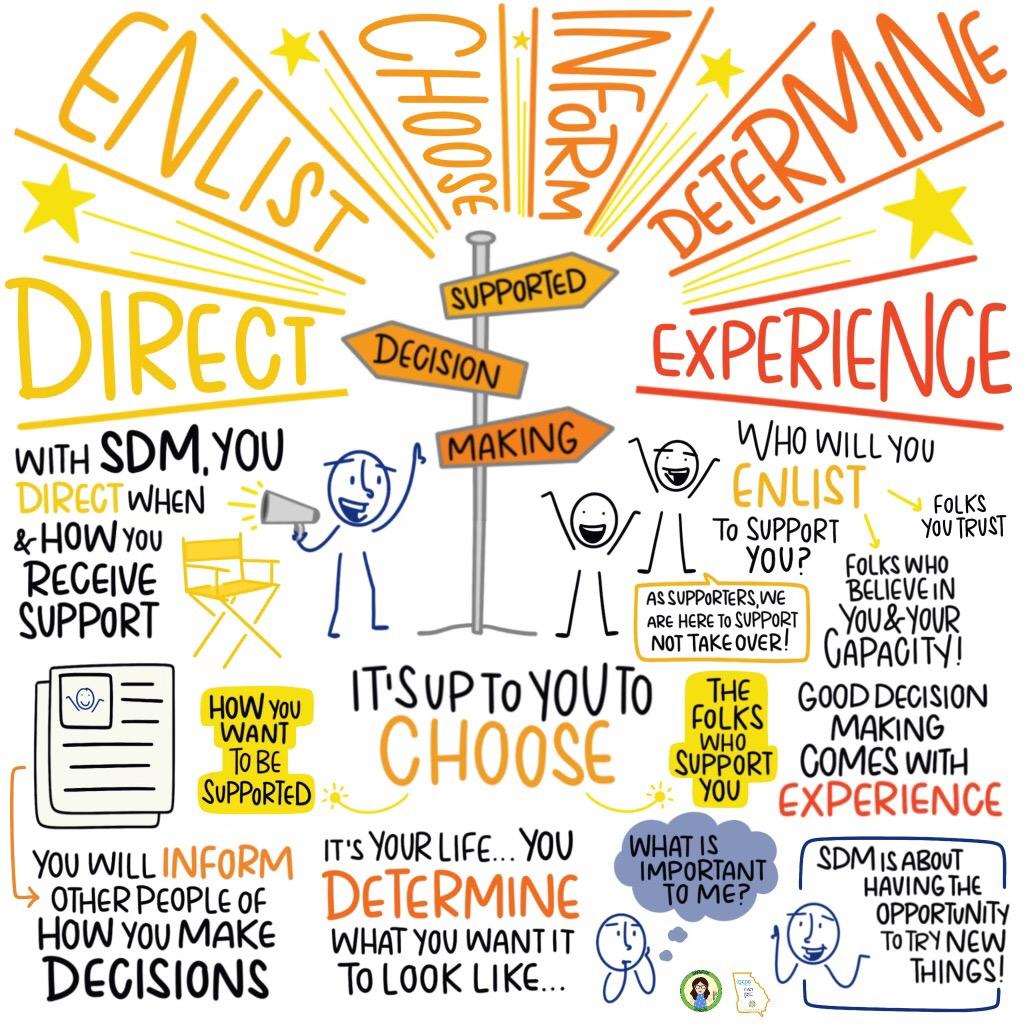 DIRECT
ENLIST
CHOOSE
INFORM
DETERMINE
EXPERIENCE
SUPPORTED
DECISION
MAKING
WITH SDM, YOU
DIRECT WHEN
& HOW YOU
RECEIVE
SUPPORT
WHO WILL YOU
ENLIST
TO SUPPORT
YOU?
FOLKS
YOU TRUST
FOLKS WHO
BELIEVE IN
YOU & YOUR
CAPACITY!
AS SUPPORTERS, WE
ARE HERE TO SUPPORT
NOT TAKE OVER!
IT'S UP TO YOU TO
CHOOSE
HOW YOU
WANT
TO BE
SUPPORTED
THE
FOLKS
WHO
SUPPORT
YOU
GOOD DECISION
MAKING
COMES WITH
EXPERIENCE
YOU WILL INFORM
OTHER PEOPLE OF
HOW YOU MAKE
DECISIONS
IT'S YOUR LIFE... YOU
DETERMINE
WHAT YOU WANT IT
TO LOOK LIKE...
WHAT IS
IMPORTANT
TO ME?
SDM IS ABOUT
HAVING THE
OPPORTUNITY
TO TRY NEW
THINGS!